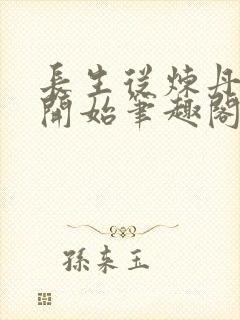 長生從煉丹
開始筆趣閣
孫來玉